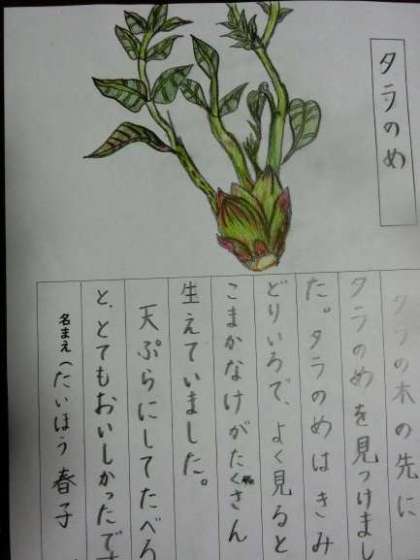 タラのめ
タラの木の先に
タラのめを見つけまし
た。タラのめはきみ
どりいろで、よく見ると
こまかなけがたくさん
生えていました。
天ぷらにしてたべ
と、とてもおいしかったです
名まえ(たいほう 春子